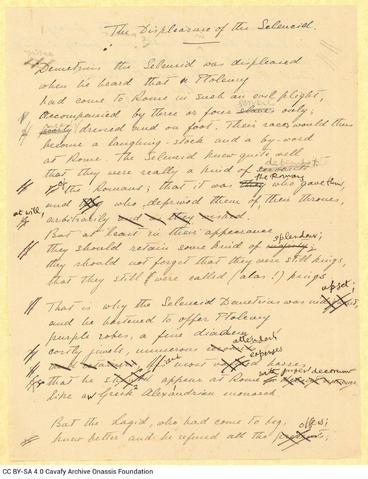 The Displeasure of the Seleucid.
Demetrius the Seleucid was displeased
when he heard that a Ptolemy
had come to Rome in such an evil plight,
servant
Accompanied by three or four slaves only,
poorly dressed and on foot. Their races would then
become a laughing-stock and a by-word
at Rome. The Seleucid knew quite well
dependent
that they were really a kind of servants
the Romans
of the Romans; that it was they who gave them,
and who deprived them of, their thrones,
at will
arbitrarily and as they wished.
But at least in their appearance
splendour;
they should retain some kind of majesty;
they should not forget that they were still kings,
that they still were called (alas!) kings.
upset;
That is why the Seleucid Demetrius was
and he hastened to offer Ptolemy
purple robes, a fine diadem
attendants
costly jewels, numerous
expenses
most horses,
with proper decorum
that he should appear at Rome
like a Greek Alexandrian monarch
But the Lagid, who had come to beg,
offers;
knew better and he refused all the presents;
CC BY-SA 4.0 Cavafy Archive Onassis Foundation